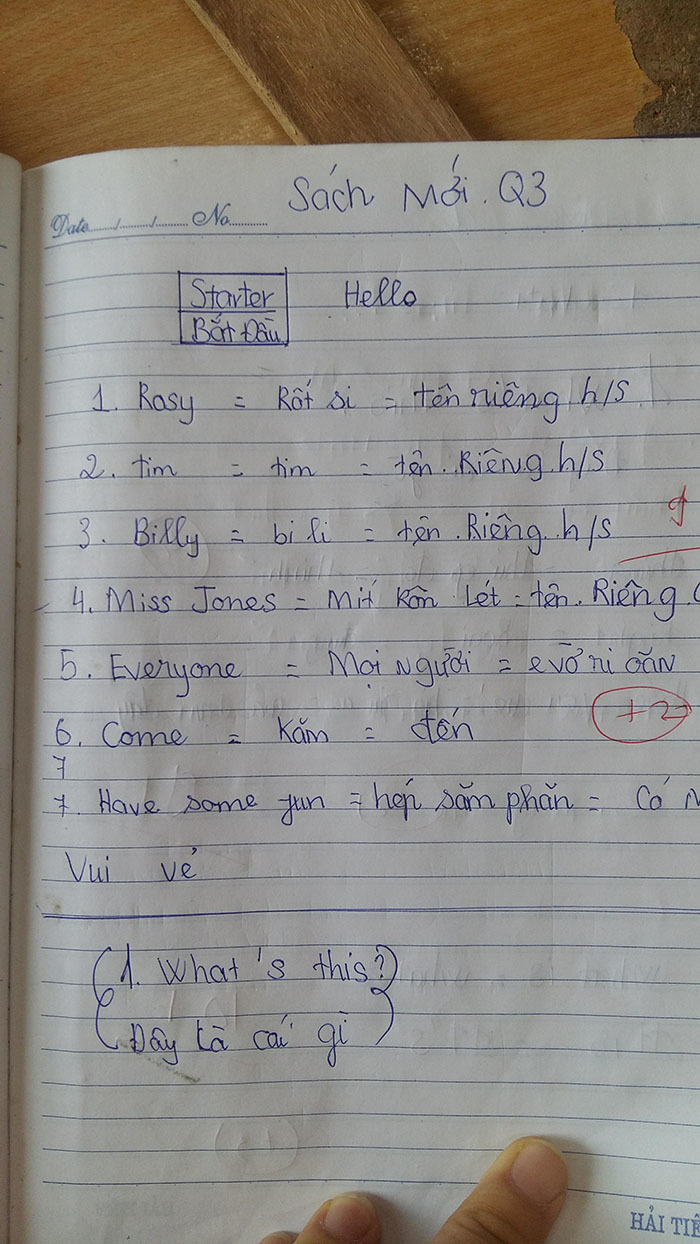 Sách Mới. Q3
Date...../...../......... No............
Starter Hello
Bắt Đầu
1. Rosy = Rốt si = tên riêng h/s
2. tim = tim = tên. Riêng. h/s
3. Billy = bi li = tên. Riêng. h/s
4. Miss Jones = Mít Rôn Lét = tên. Riêng (
5. Everyone = Mọi người = e vở ri oăn
+2
6. Come = Kăm = đến
7
7. Have some fun = hép săm phăn = Có N
Vui vẻ
(1. What's this?)
(Đây là cái gì)
HẢI TIẾ